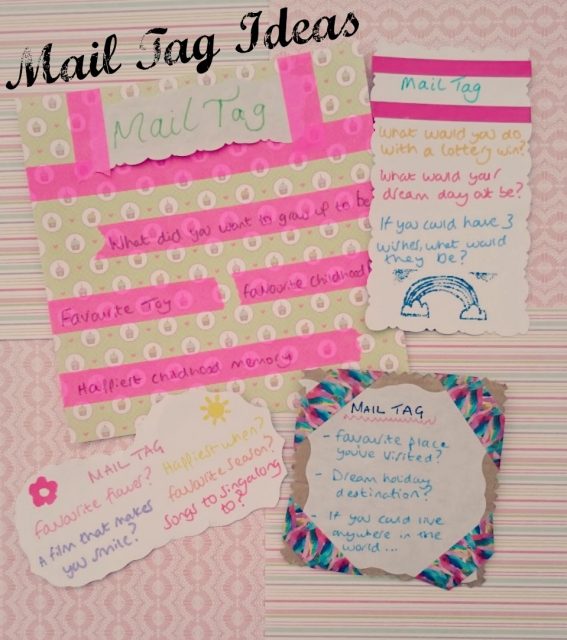 Mail Tag Ideas
Mail Tag
What did you want to grow up to be
Favourite Toy
favourite childhood
Happiest childhood memory
Mail Tag
What would you do
with a lottery win?
What would your
dream day out be?
If you could have 3
wishes, what would
they be?
MAIL TAG
favourite flower?
A film that makes
you smile?
Happiest when?
favourite season?
Songs to singalong
to?
MAIL TAG
- favourite place
you've visited?
- Dream holiday
destination?
- If you could live
anywhere in the
world...